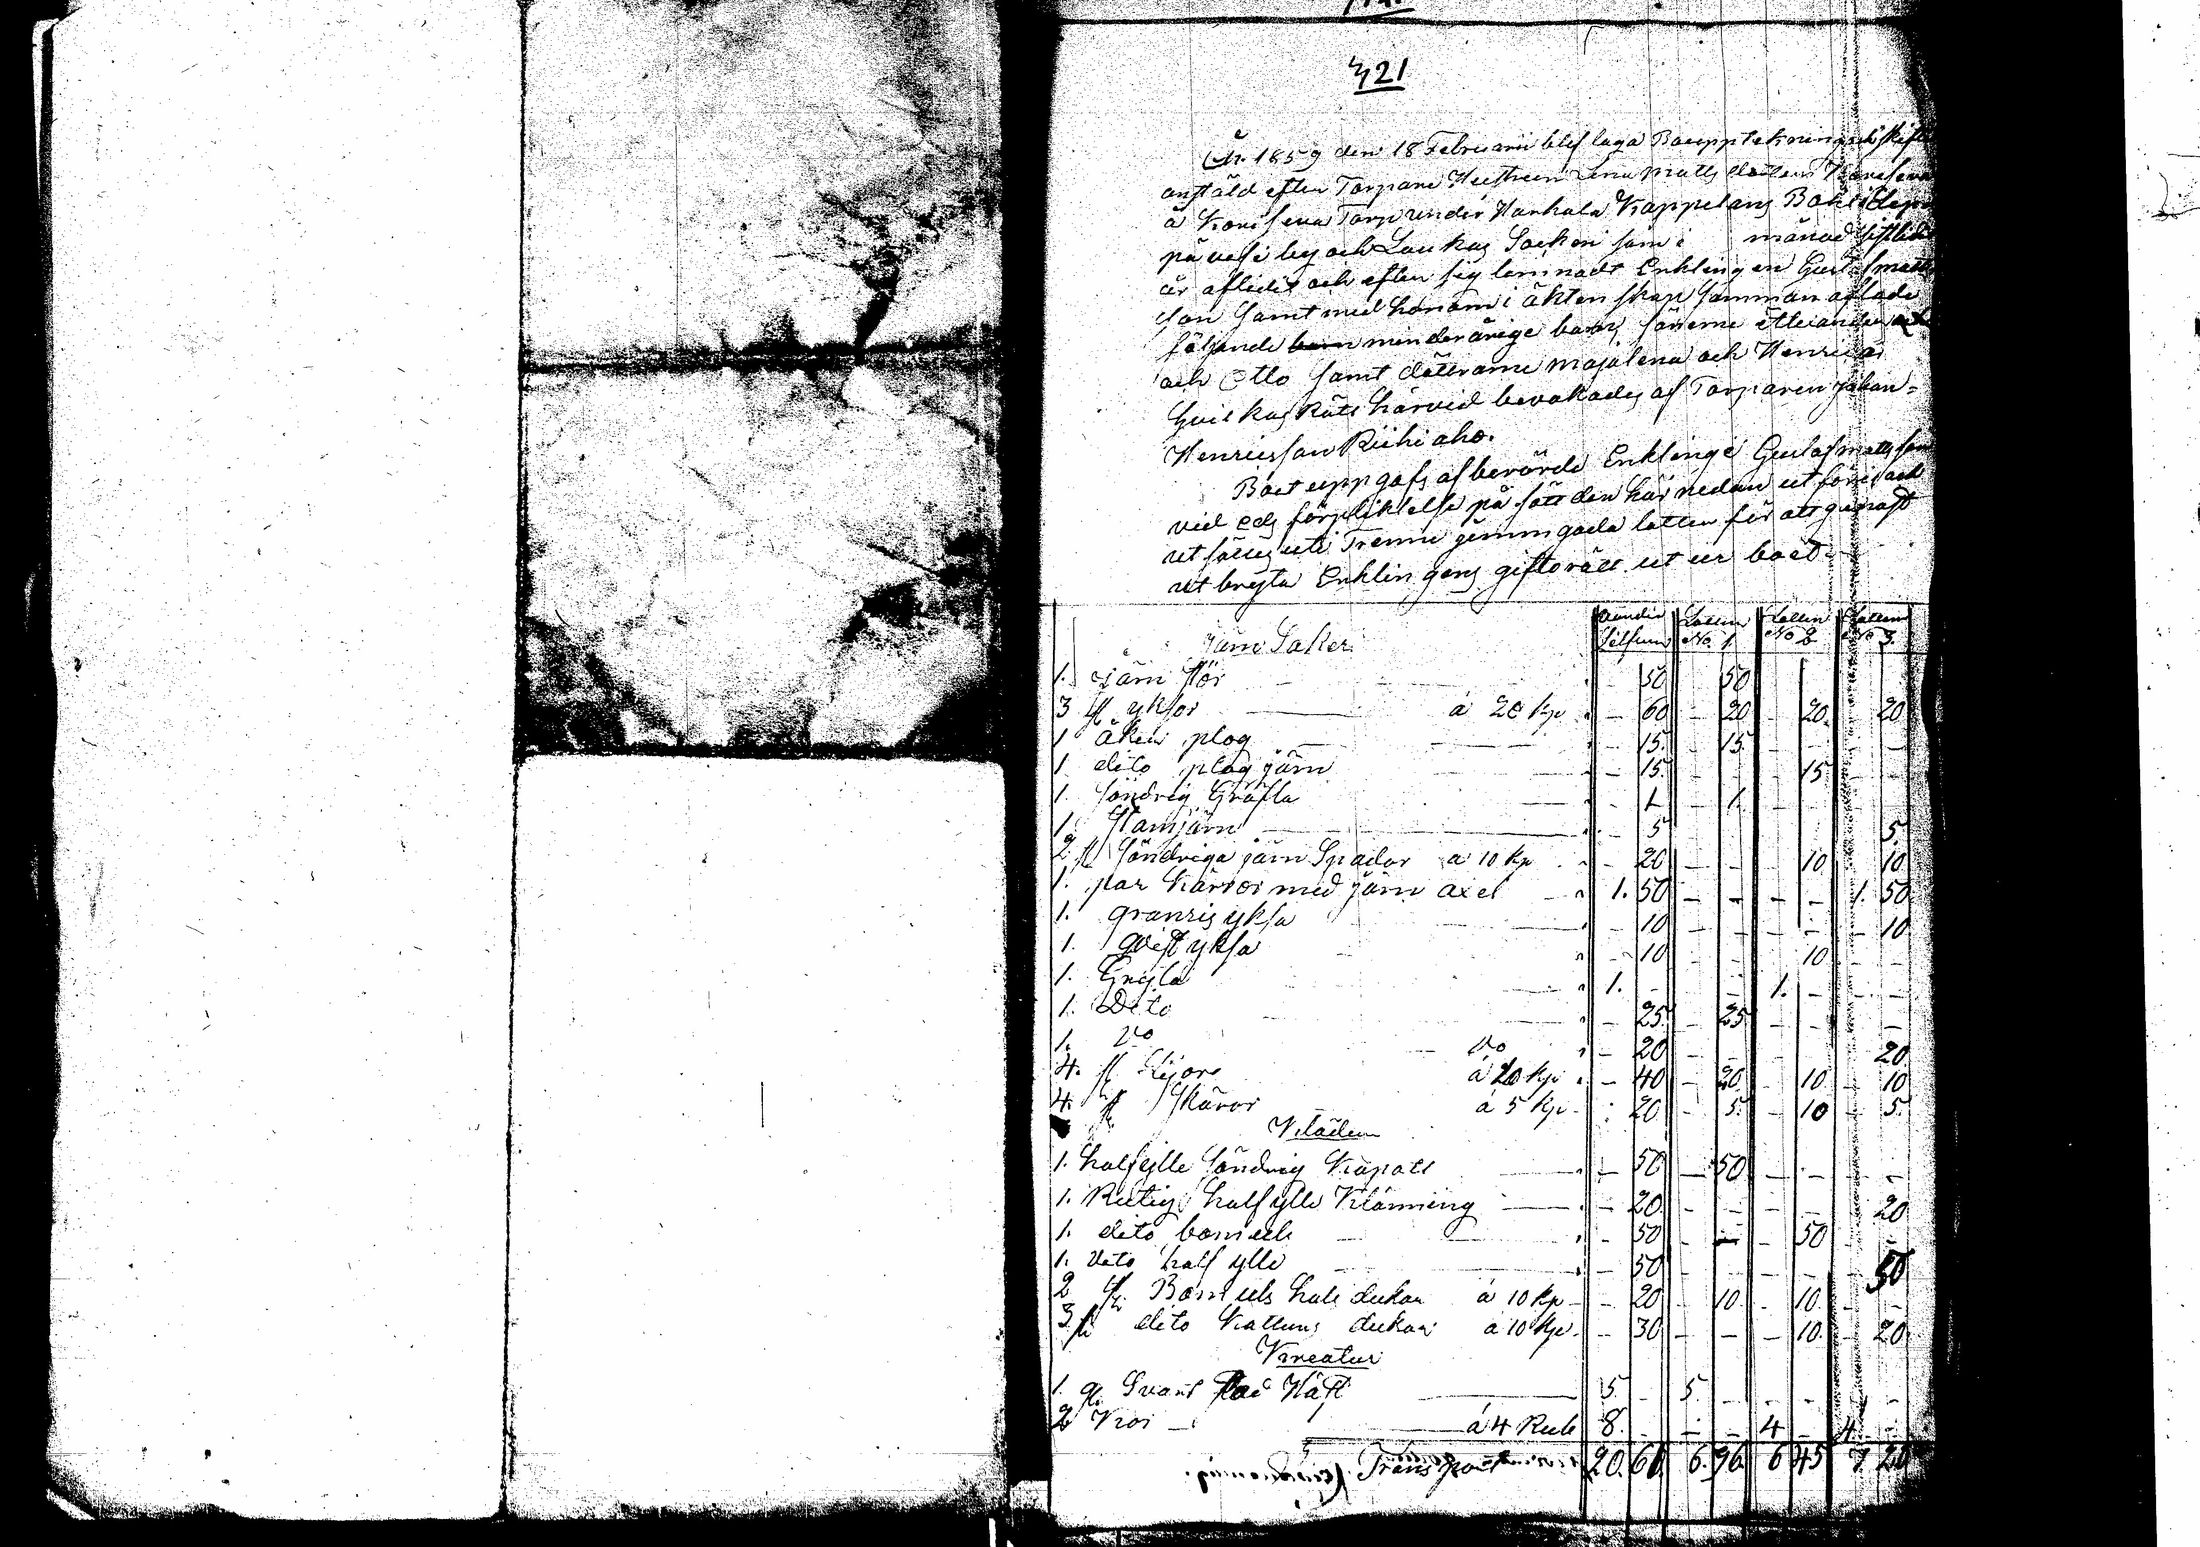 421
År 1859 den 18 Februarii blef laga Boupptekning och skifte
anstäld efter Torpare Hustrun Lena Matts dotter
å Torp under Kappelans Bohl
på by och Laukas Socken som i månad sistlidne
år aflidit och efter sig lemnadt Enklingen Gustaf Matts
son samt med honom i äktenskap samman aflade
följande barn minderårige barn, sönerne
och Otto samt döttrarne Majalena och Henrica
hvilkas Rätt härvid bevakades af Torparen Johan
Henricsson Riihiaho.
Boet uppgafs af berörde Enklinge Gustaf Mattsson
vid eds förpliktelse på sätt den här nedan utföres och
uti Trenne jemngoda lotter för att genast
utbryta Enklingens giftorätt ut ur boet
Järn Saker
Silfver Lotten No 1 Lotten No 2 Lotten No 3
1. järn Stör - 50 - 50
3 st yksor á 20 Kp - 60 - 20 - 20 - 20
1 åker plog - 15. - 15 - - - -
1. dito plog järn - 15. 15
1. söndrig Gräfta - 1 - 1.
1. Stamjärn - 5 5.
2 st söndriga järn Spador á 10 Kp - 20 - - 10 10
1. par Kärror med järn axel 1. 50 - - - - 1. 50
1. granris yksa - 10 - - - - - 10
1. qvist yksa - 10 10
1. Gryta 1. - 1. -
1. Dito - 25 - 25 - - - -
1. Do Do - 20 - - 20
4. st Lijor á 10 Kp - 40 - 20 10 - 10
4. st Skäror á 5 Kp - 20 - 5. - 10 - 5.
Kläder
1. halfylle söndrig Kapott - 50 - 50 - - - -
1. Rutig halfylle Klänning - 20 - - - - 20
1. dito bomuls - 50 - - - 50
1. Dito half ylle - 50 - - - - 50
2 st. Bomuls hals dukar á 10 Kp - 20 - 10 - 10 - -
3 st dito Kattuns dukar á 10 Kp. - 30 - - - 10. - 20
Kreatur
1. Svart Häst 5 - 5. - - - -
2 Kor á 4 Rub 8. - - - 4 - 4 -
Transport 20. 61 6. 96 6 45 7 20